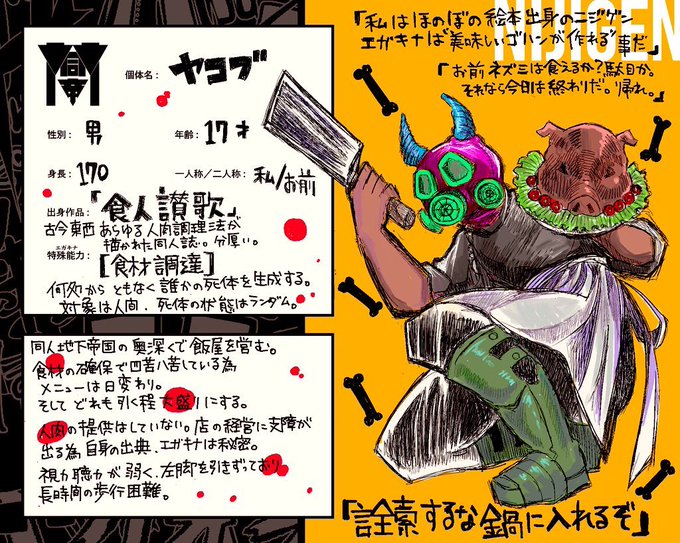 個体名： ヤコブ
性別： 男
年齢： 17才
身長： 170
一人称／二人称： 私/お前
出身作品： 「食人讃歌」
古今東西あらゆる人肉調理法が
描かれた同人誌。分厚い。
エガキナ
特殊能力： [食材調達]
何処からともなく誰かの死体を生成する。
対象は人間、死体の状態はランダム。
同人地下帝国の奥深くで飯屋を営む。
食材の確保で四苦八苦している為
メニューは日変わり。
そしてどれも引く程大盛りにする。
人肉の提供はしていない。店の経営に支障が
出る為自身の出典、エガキナは秘密。
視力聴力が弱く、左脚を引きずっており
長時間の歩行困難。
NIJIGEN
「私はほのぼの絵本出身のニジゲン
エガキナは美味しいゴハンが作れる事だ」
「お前ネズミは食えるか？駄目か。
それなら今日は終わりだ。帰れ。」
「詮索するな鍋に入れるぞ」